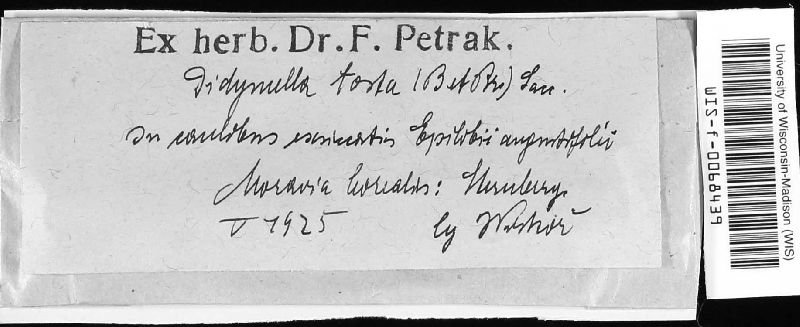 Ex herb. Dr. F. Petrak.
Didymella tosta (B et Br) Sacc.
In caulibus exsiccatis Epilobii angustifolii
Moravia borealis: Sternberg.
V 1925 lg
University of Wisconsin-Madison (WIS)
WIS-f-0068439